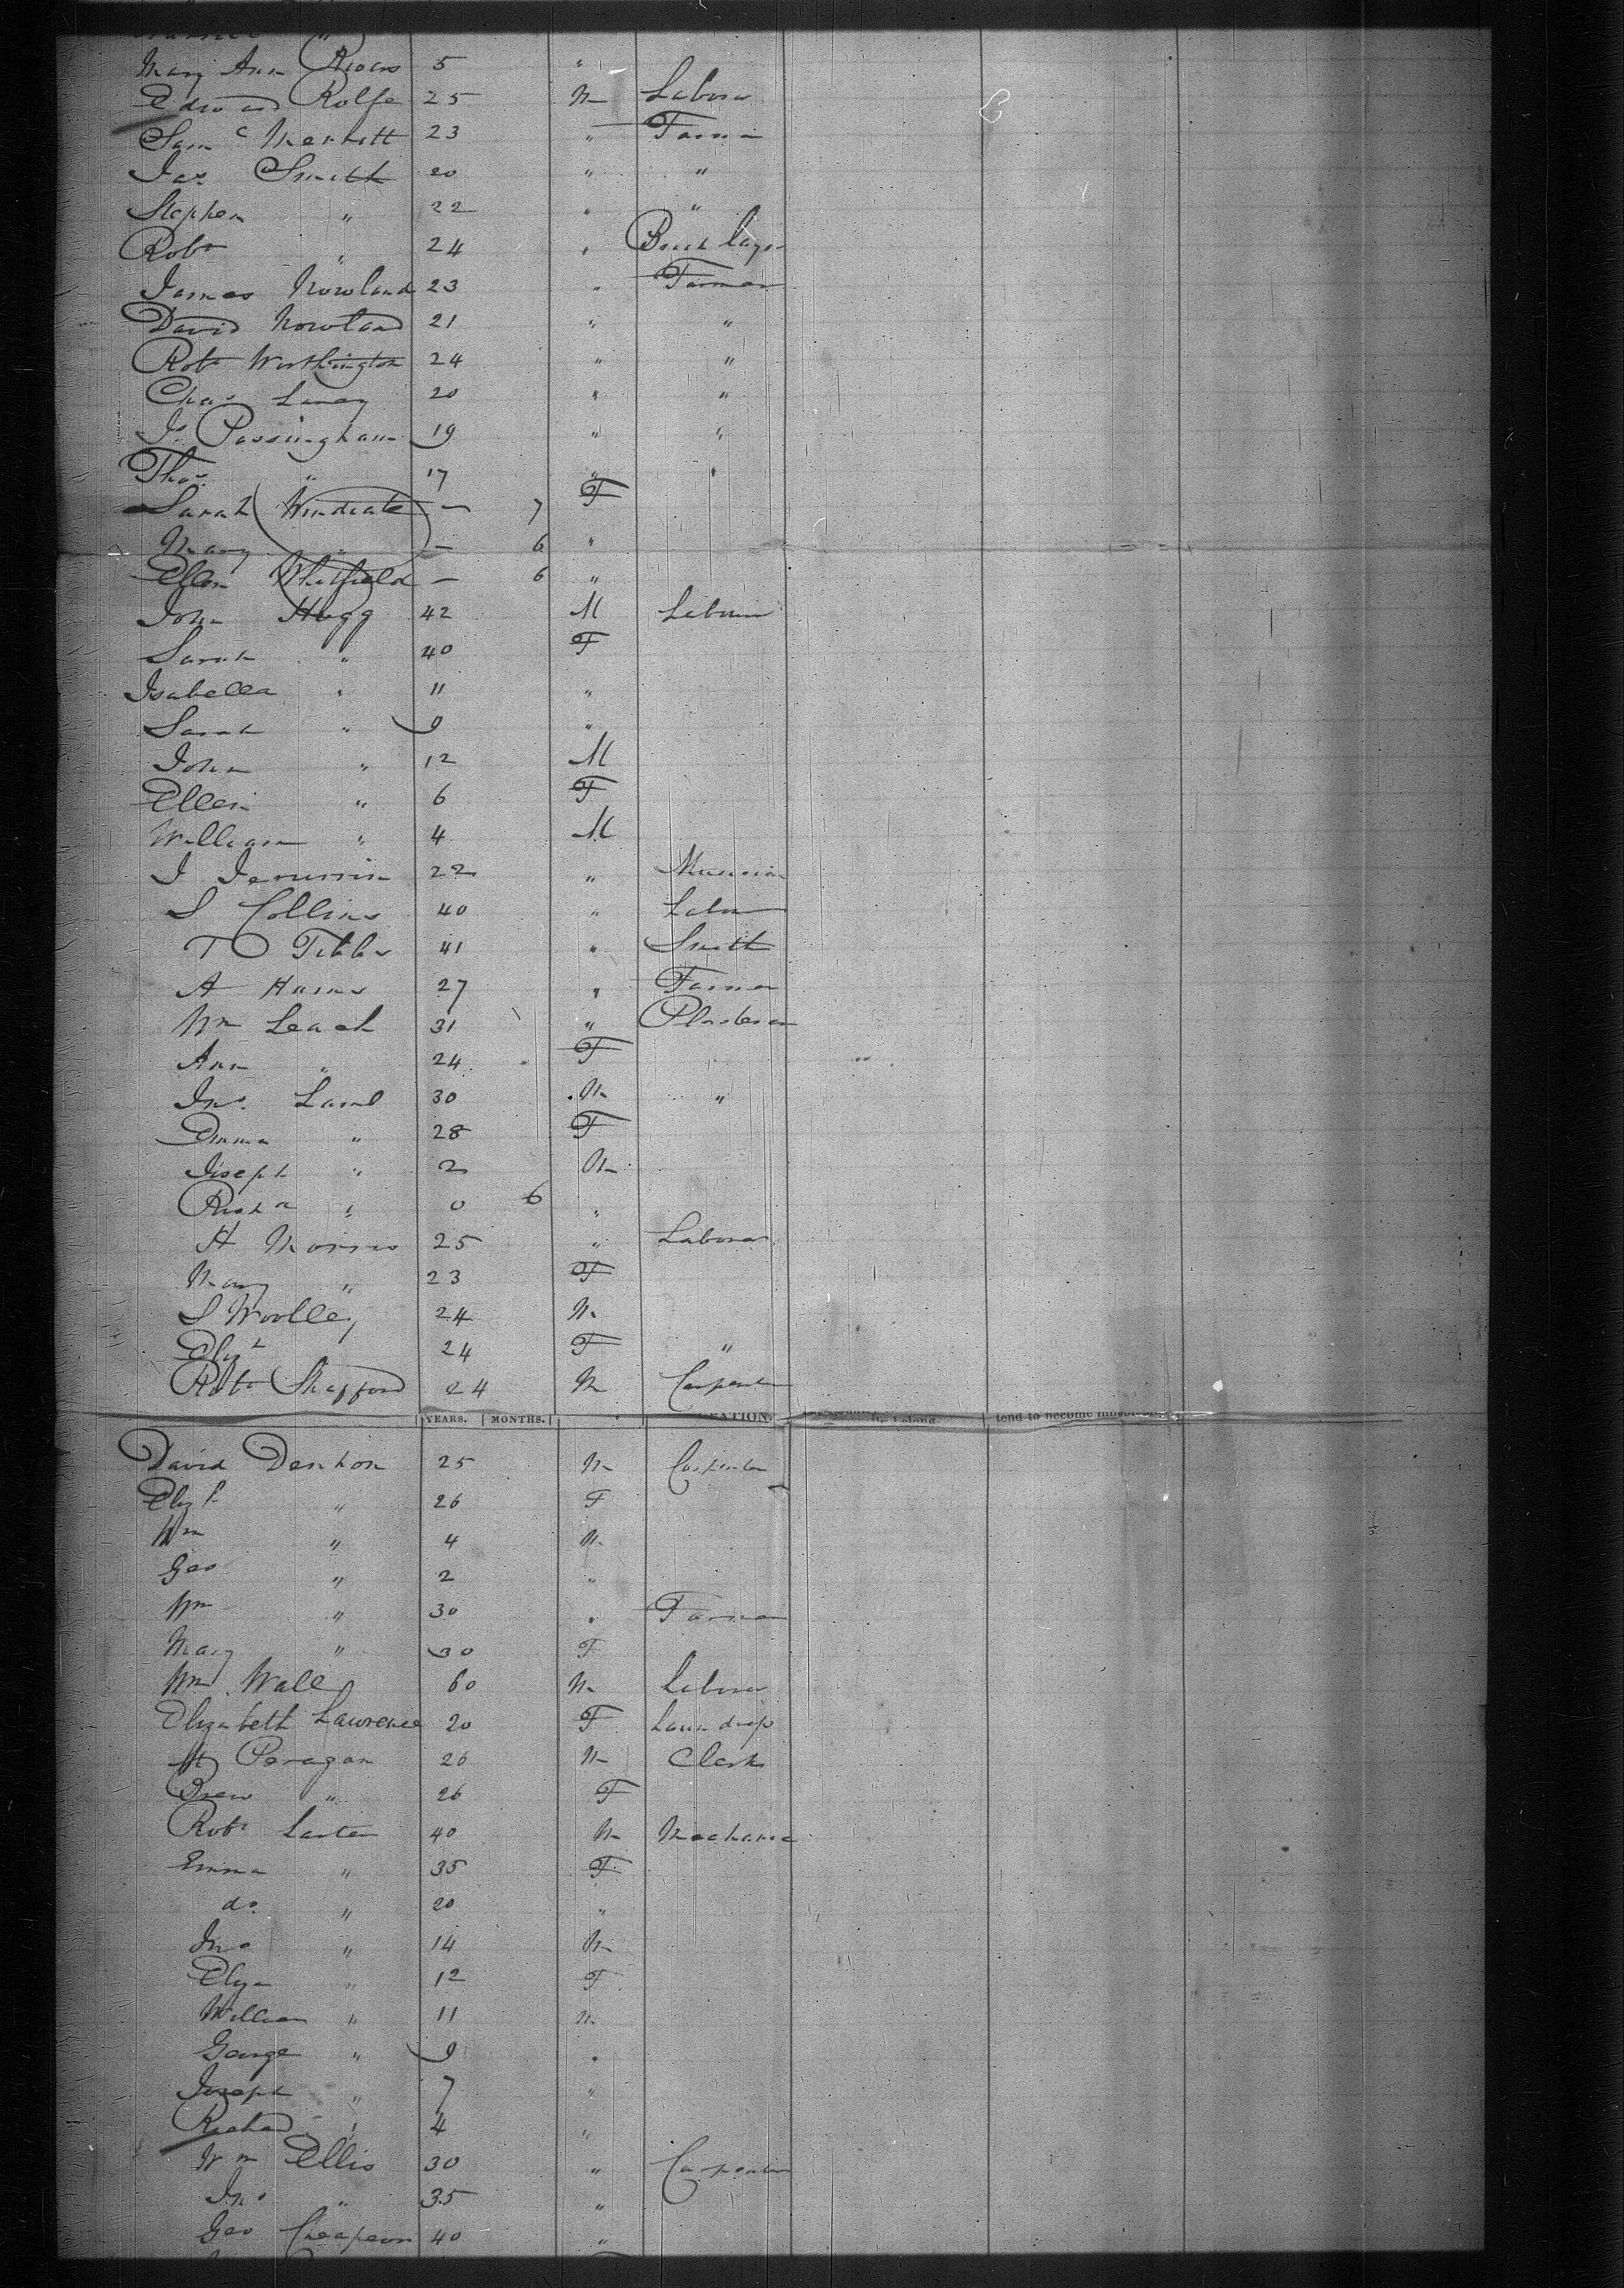 Mary Ann 5 "
Edward Rolfe 25 M Labour
Sam Merritt 23 " Farmer
Jas Smith 20 " "
Stephen " 22 " "
Robt " 24 " Brick layer
James Nowland 23 " Farmer
David Nowland 21 " "
Robt Worthington 24 " "
Chas Laney 20 " "
Js Possingham 19 " "
Thos " 17 " "
Sarah Windeate — 7 F
Mary " — 6 "
Ellen Whitfield — 6 "
John Hogg 42 M Labour
Sarah " 40 F
Isabella " 11 "
Sarah " 9 "
John " 12 M
Ellen " 6 F
William " 4 M
J 22 "
S Collins 40 " Labour
T Tibbs 41 " Smith
A 27 " Farmer
Wm Leach 31 " Plasterer
Ann " 24 F
Jno. Lamb 30 M "
Emma " 28 F
Joseph " 2 M
Richd " 0 6 "
H Morris 25 " Labour
Mary " 23 F
S Woolley 24 M
Elizh 24 F "
Robt Shafford 24 M Carpenter
YEARS. MONTHS. tend to become
David Denton 25 M Carpenter
Elizh " 26 F
Wm " 4 M
Geo " 2 "
Wm " 30 " Farmer
Mary " 30 F
Wm Wall 60 M Labour
Elizabeth Lawrence 20 F
H Paragon 26 M Clerk
" 26 F
Robt Larter 40 M Mechanic
Emma " 35 F
do. " 20 "
Jno " 14 M
Eliza " 12 F
William " 11 M
George " 9 "
Joseph " 7 "
Richard " 4 "
Wm Ellis 30 " Carpenter
Jno " 35 "
Geo 40 "